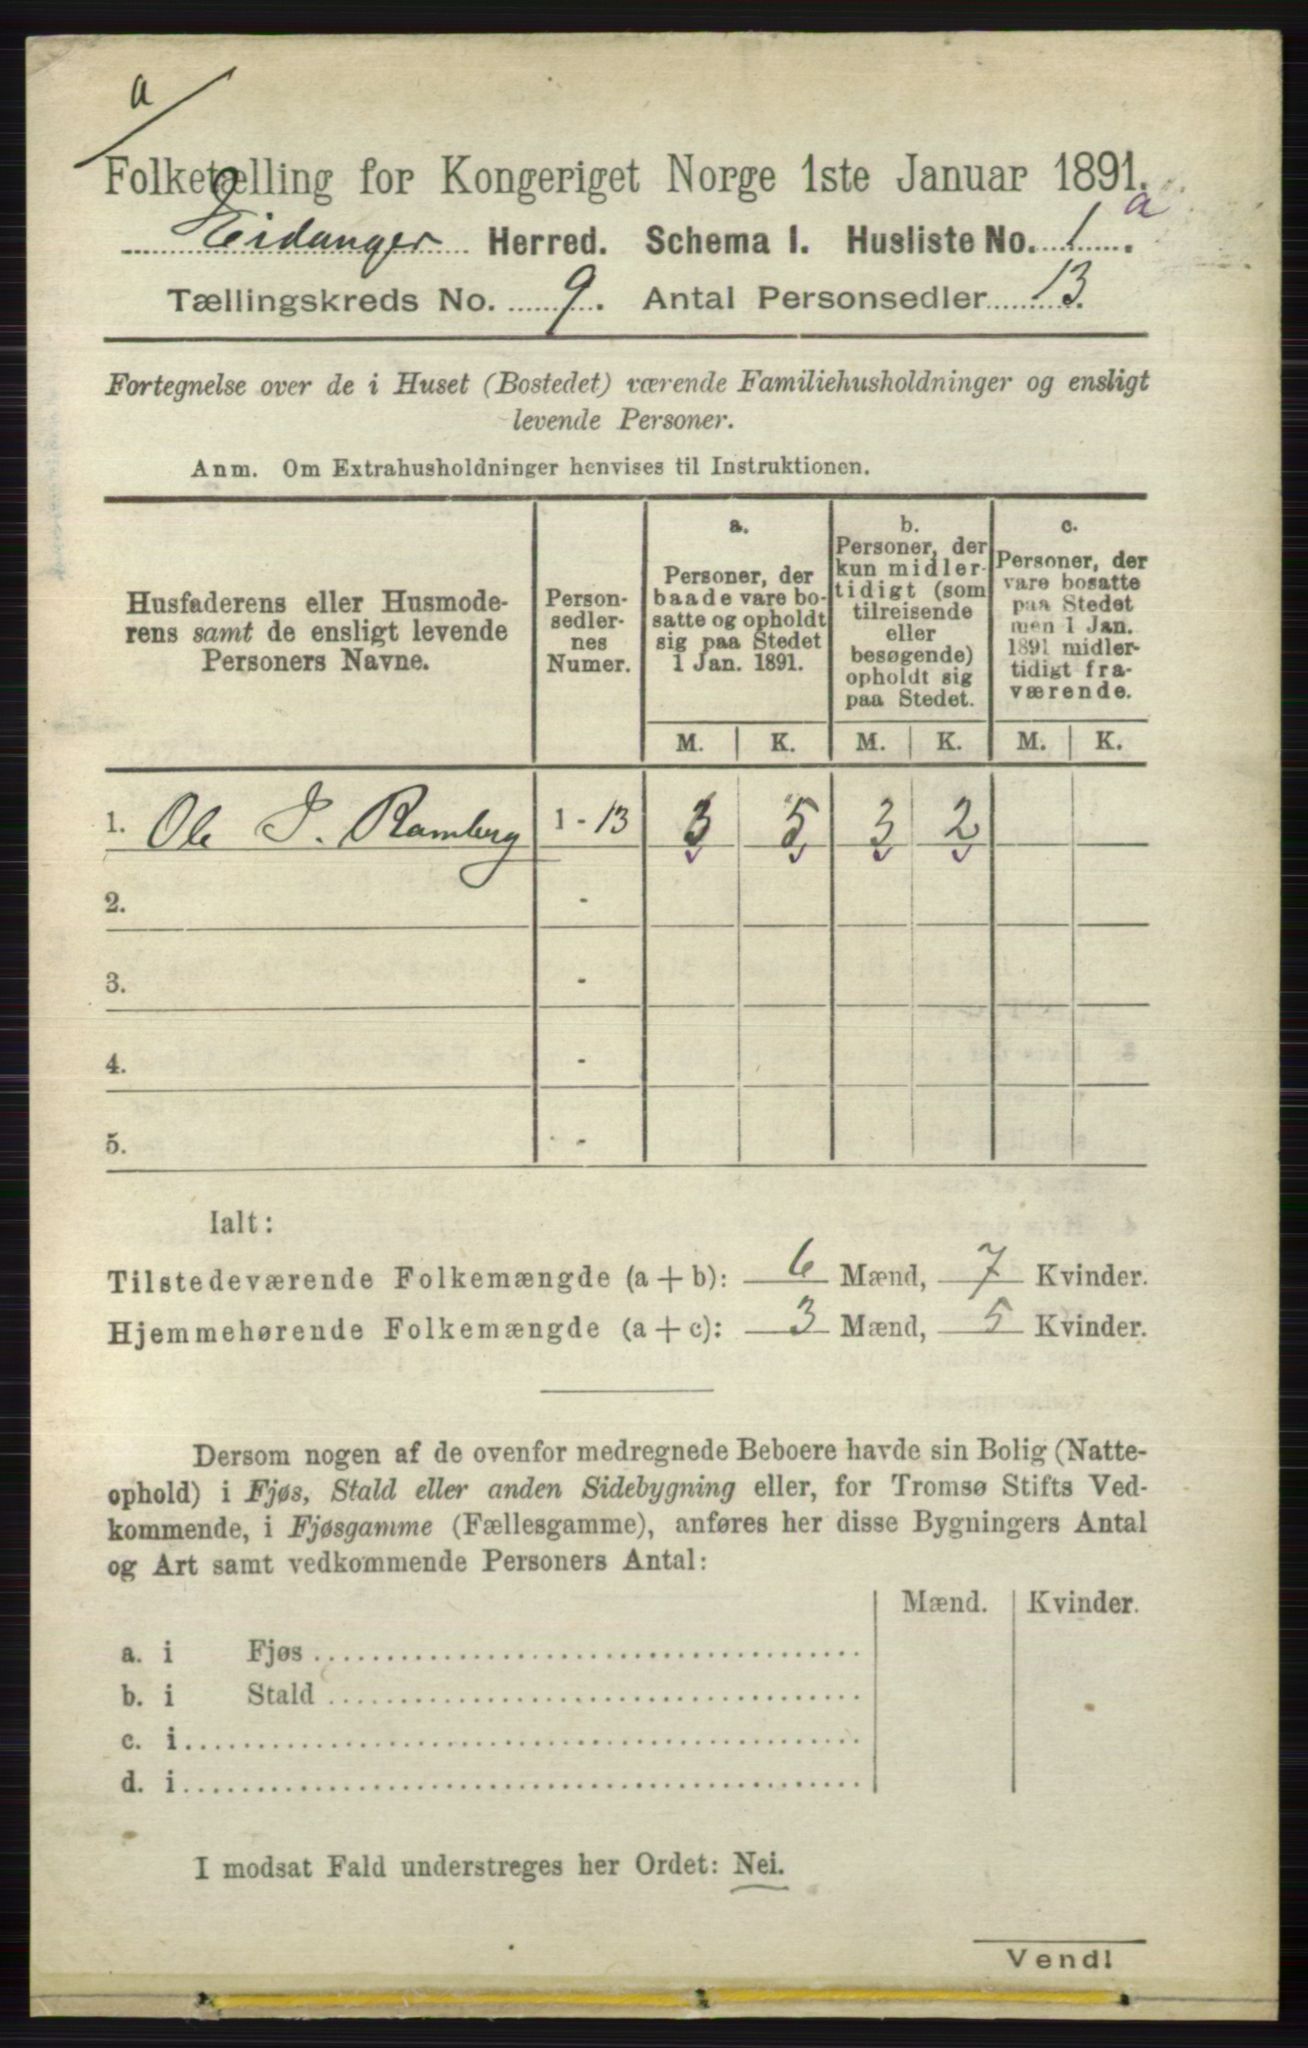 a
Folketælling for Kongeriget Norge 1ste Januar 1891.
Eidanger Herred. Schema I. Husliste No. 1 a.
Tællingskreds No. 9. Antal Personsedler 13.
Fortegnelse over de i Huset (Bostedet) værende Familiehusholdninger og ensligt
levende Personer.
Anm. Om Extrahusholdninger henvises til Instruktionen.
Husfaderens eller Husmode-
rens samt de ensligt levende
Personers Navne.
Person-
sedler-
nes
Numer.
a.
Personer, der
baade vare bo-
satte og opholdt
sig paa Stedet
1 Jan. 1891.
b.
Personer, der
kun midler-
tidigt (som
tilreisende
eller
besøgende)
opholdt sig
paa Stedet.
c.
Personer, der
vare bosatte
paa Stedet
men 1 Jan.
1891 midler-
tidigt fra-
værende.
M. K. M. K. M. K.
1. Ole P. Ramberg 1 - 13 3 5 3 2
2. -
3. -
4. -
5. -
Ialt:
Tilstedeværende Folkemængde (a + b): 6 Mænd, 7 Kvinder.
Hjemmehørende Folkemængde (a + c): 3 Mænd, 5 Kvinder.
Dersom nogen af de ovenfor medregnede Beboere havde sin Bolig (Natte-
ophold) i Fjøs, Stald eller anden Sidebygning eller, for Tromsø Stifts Ved-
kommende, i Fjøsgamme (Fællesgamme), anføres her disse Bygningers Antal
og Art samt vedkommende Personers Antal:
Mænd. Kvinder.
a. i Fjøs
b. i Stald
c. i
d. i
I modsat Fald understreges her Ordet: Nei.
Vend!